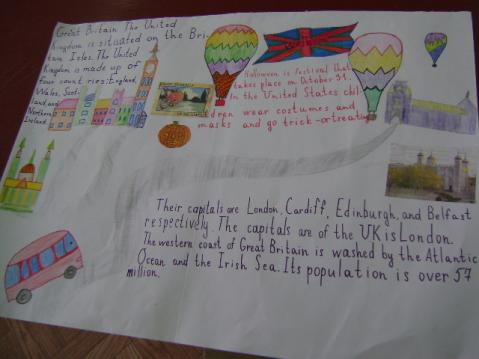 Great Britain The United
Kingdom is situated on the Bri-
tain Isles. The United
Kingdom is made up of
four count ries: England,
Wales, Scot-
land, and
Northern
Ireland
Halloween is festival that
takes place on October 31.
In the United States chil-
dren wear costumes and
masks and go trick-ortreating
Their capitals are London, Cardiff, Edinburgh, and Belfast
respectively. The capitals are of the UK is London.
The western coast of Great Britain is washed by the Atlantic
Ocean and the Irish Sea. Its population is over 57
million.